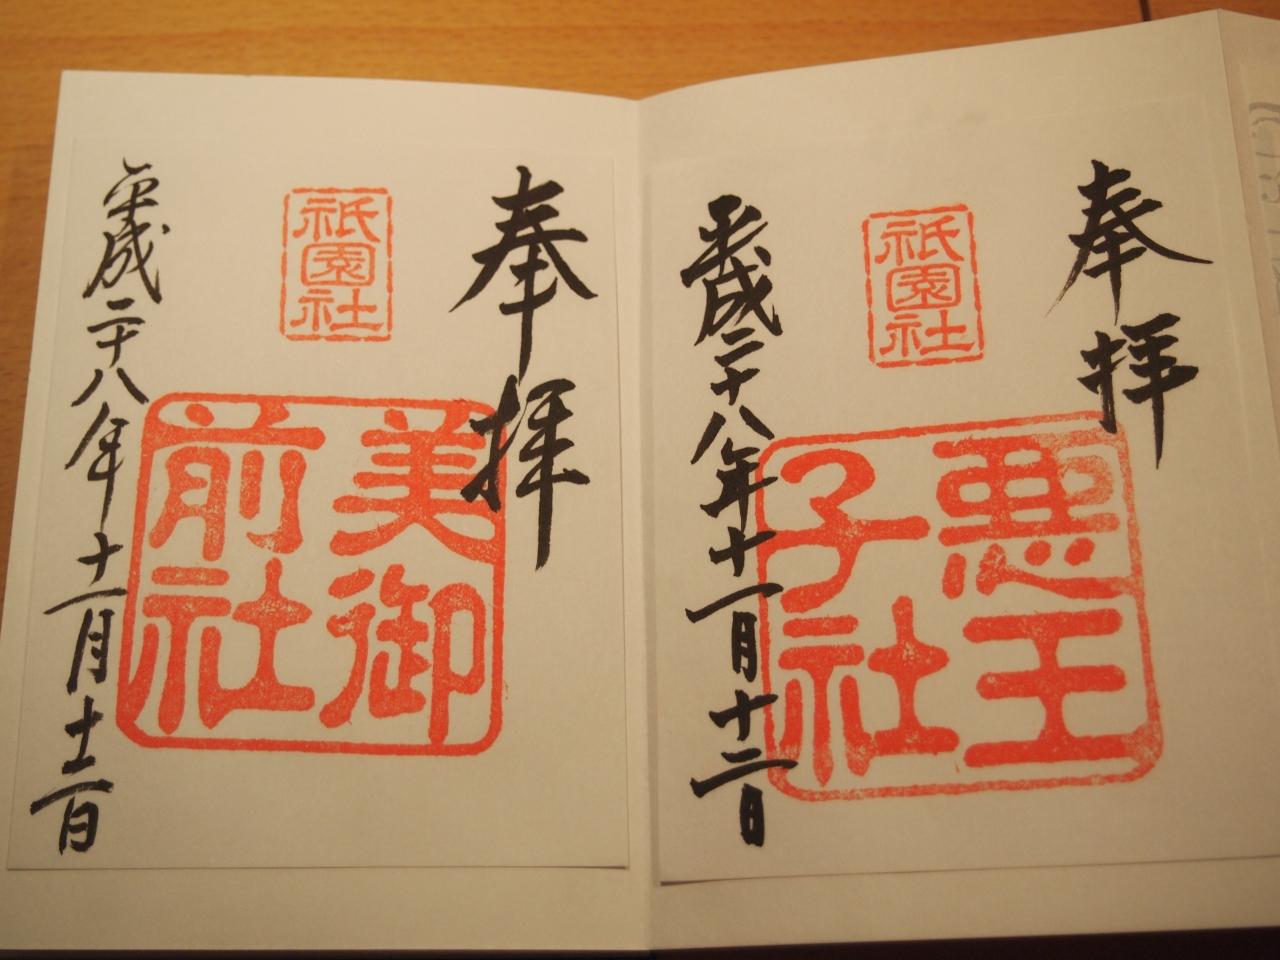 奉拝
祇園社
悪王子社
平成二十八年十一月十二日
奉拝
祇園社
美御前社
平成二十八年十一月十二日